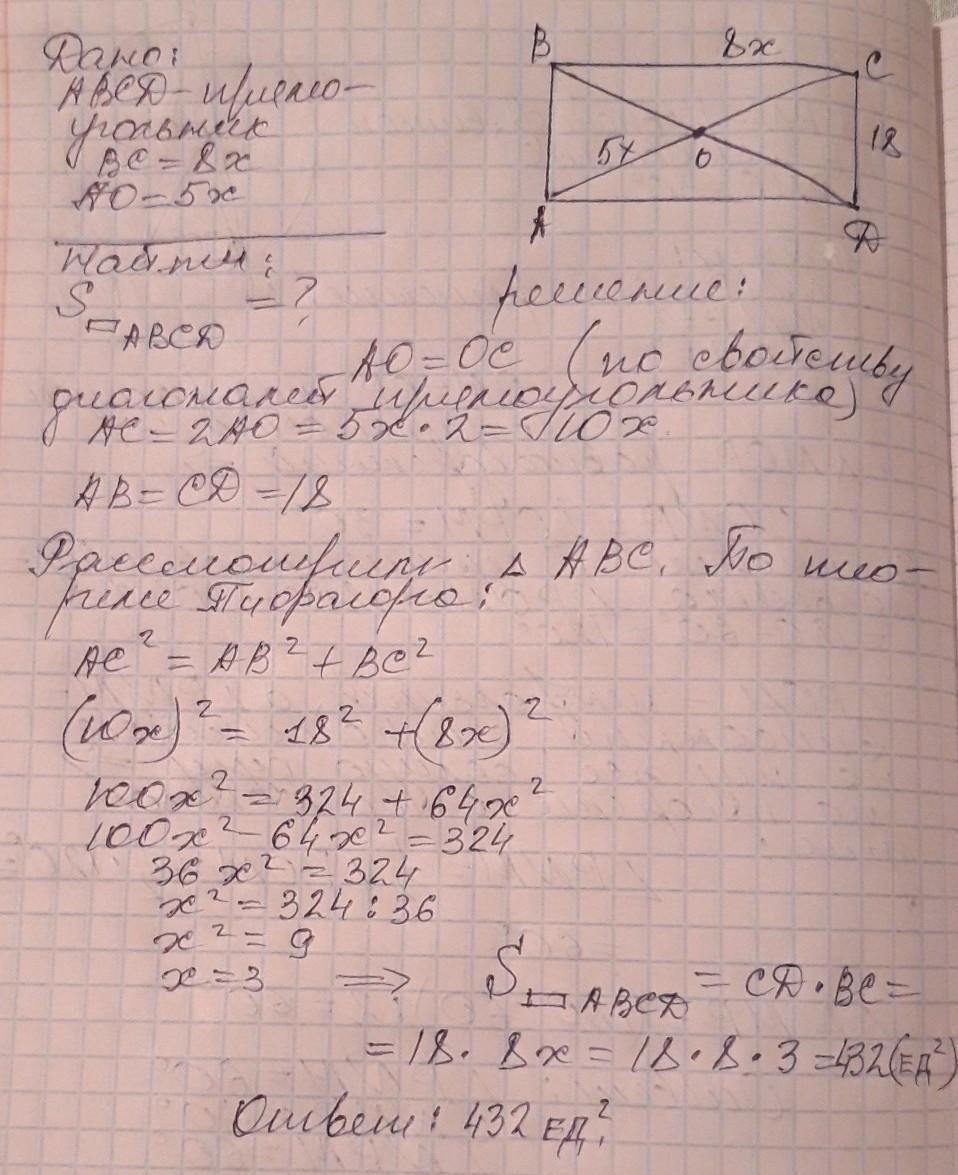 Дано:
ABCD - прямо-
угольник
BC = 8x
AO = 5x
Найти:
S▭ABCD = ?
B 8x C
5x O 18
A D
решение:
AO = OC (по свойству
диагоналей прямоугольника)
AC = 2AO = 5x · 2 = 10x
AB = CD = 18
Рассмотрим △ ABC. По тео-
реме Пифагора:
AC² = AB² + BC²
(10x)² = 18² + (8x)²
100x² = 324 + 64x²
100x² - 64x² = 324
36x² = 324
x² = 324 : 36
x² = 9
x = 3 ⇒ S▭ABCD = CD · BC =
= 18 · 8x = 18 · 8 · 3 = 432 (ЕД²)
Ответ: 432 ЕД².